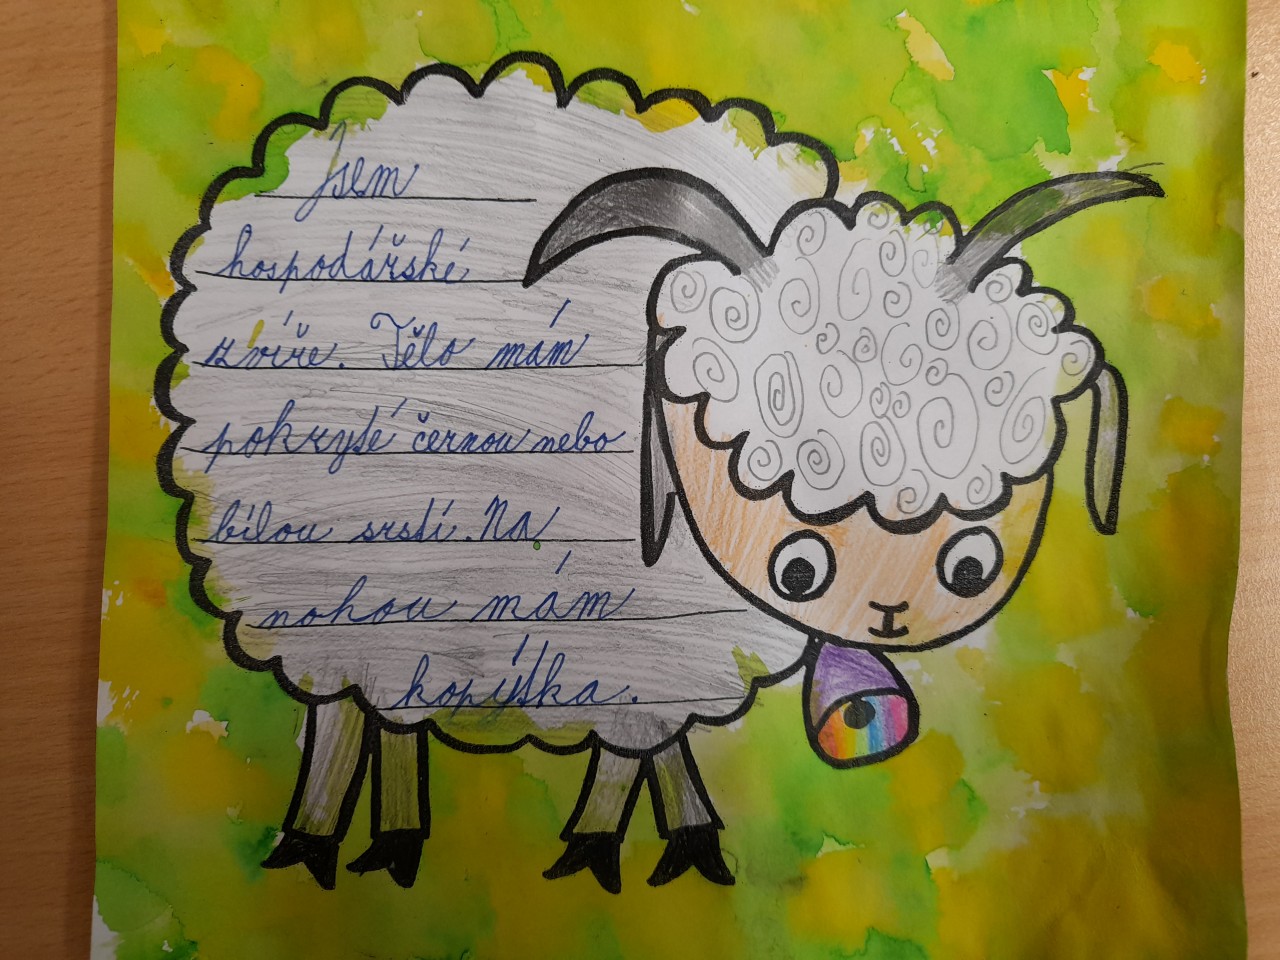 Jsem
hospodářské
zvíře. Tělo mám
pokryté černou nebo
bílou srstí. Na
nohou mám
kopýtka.